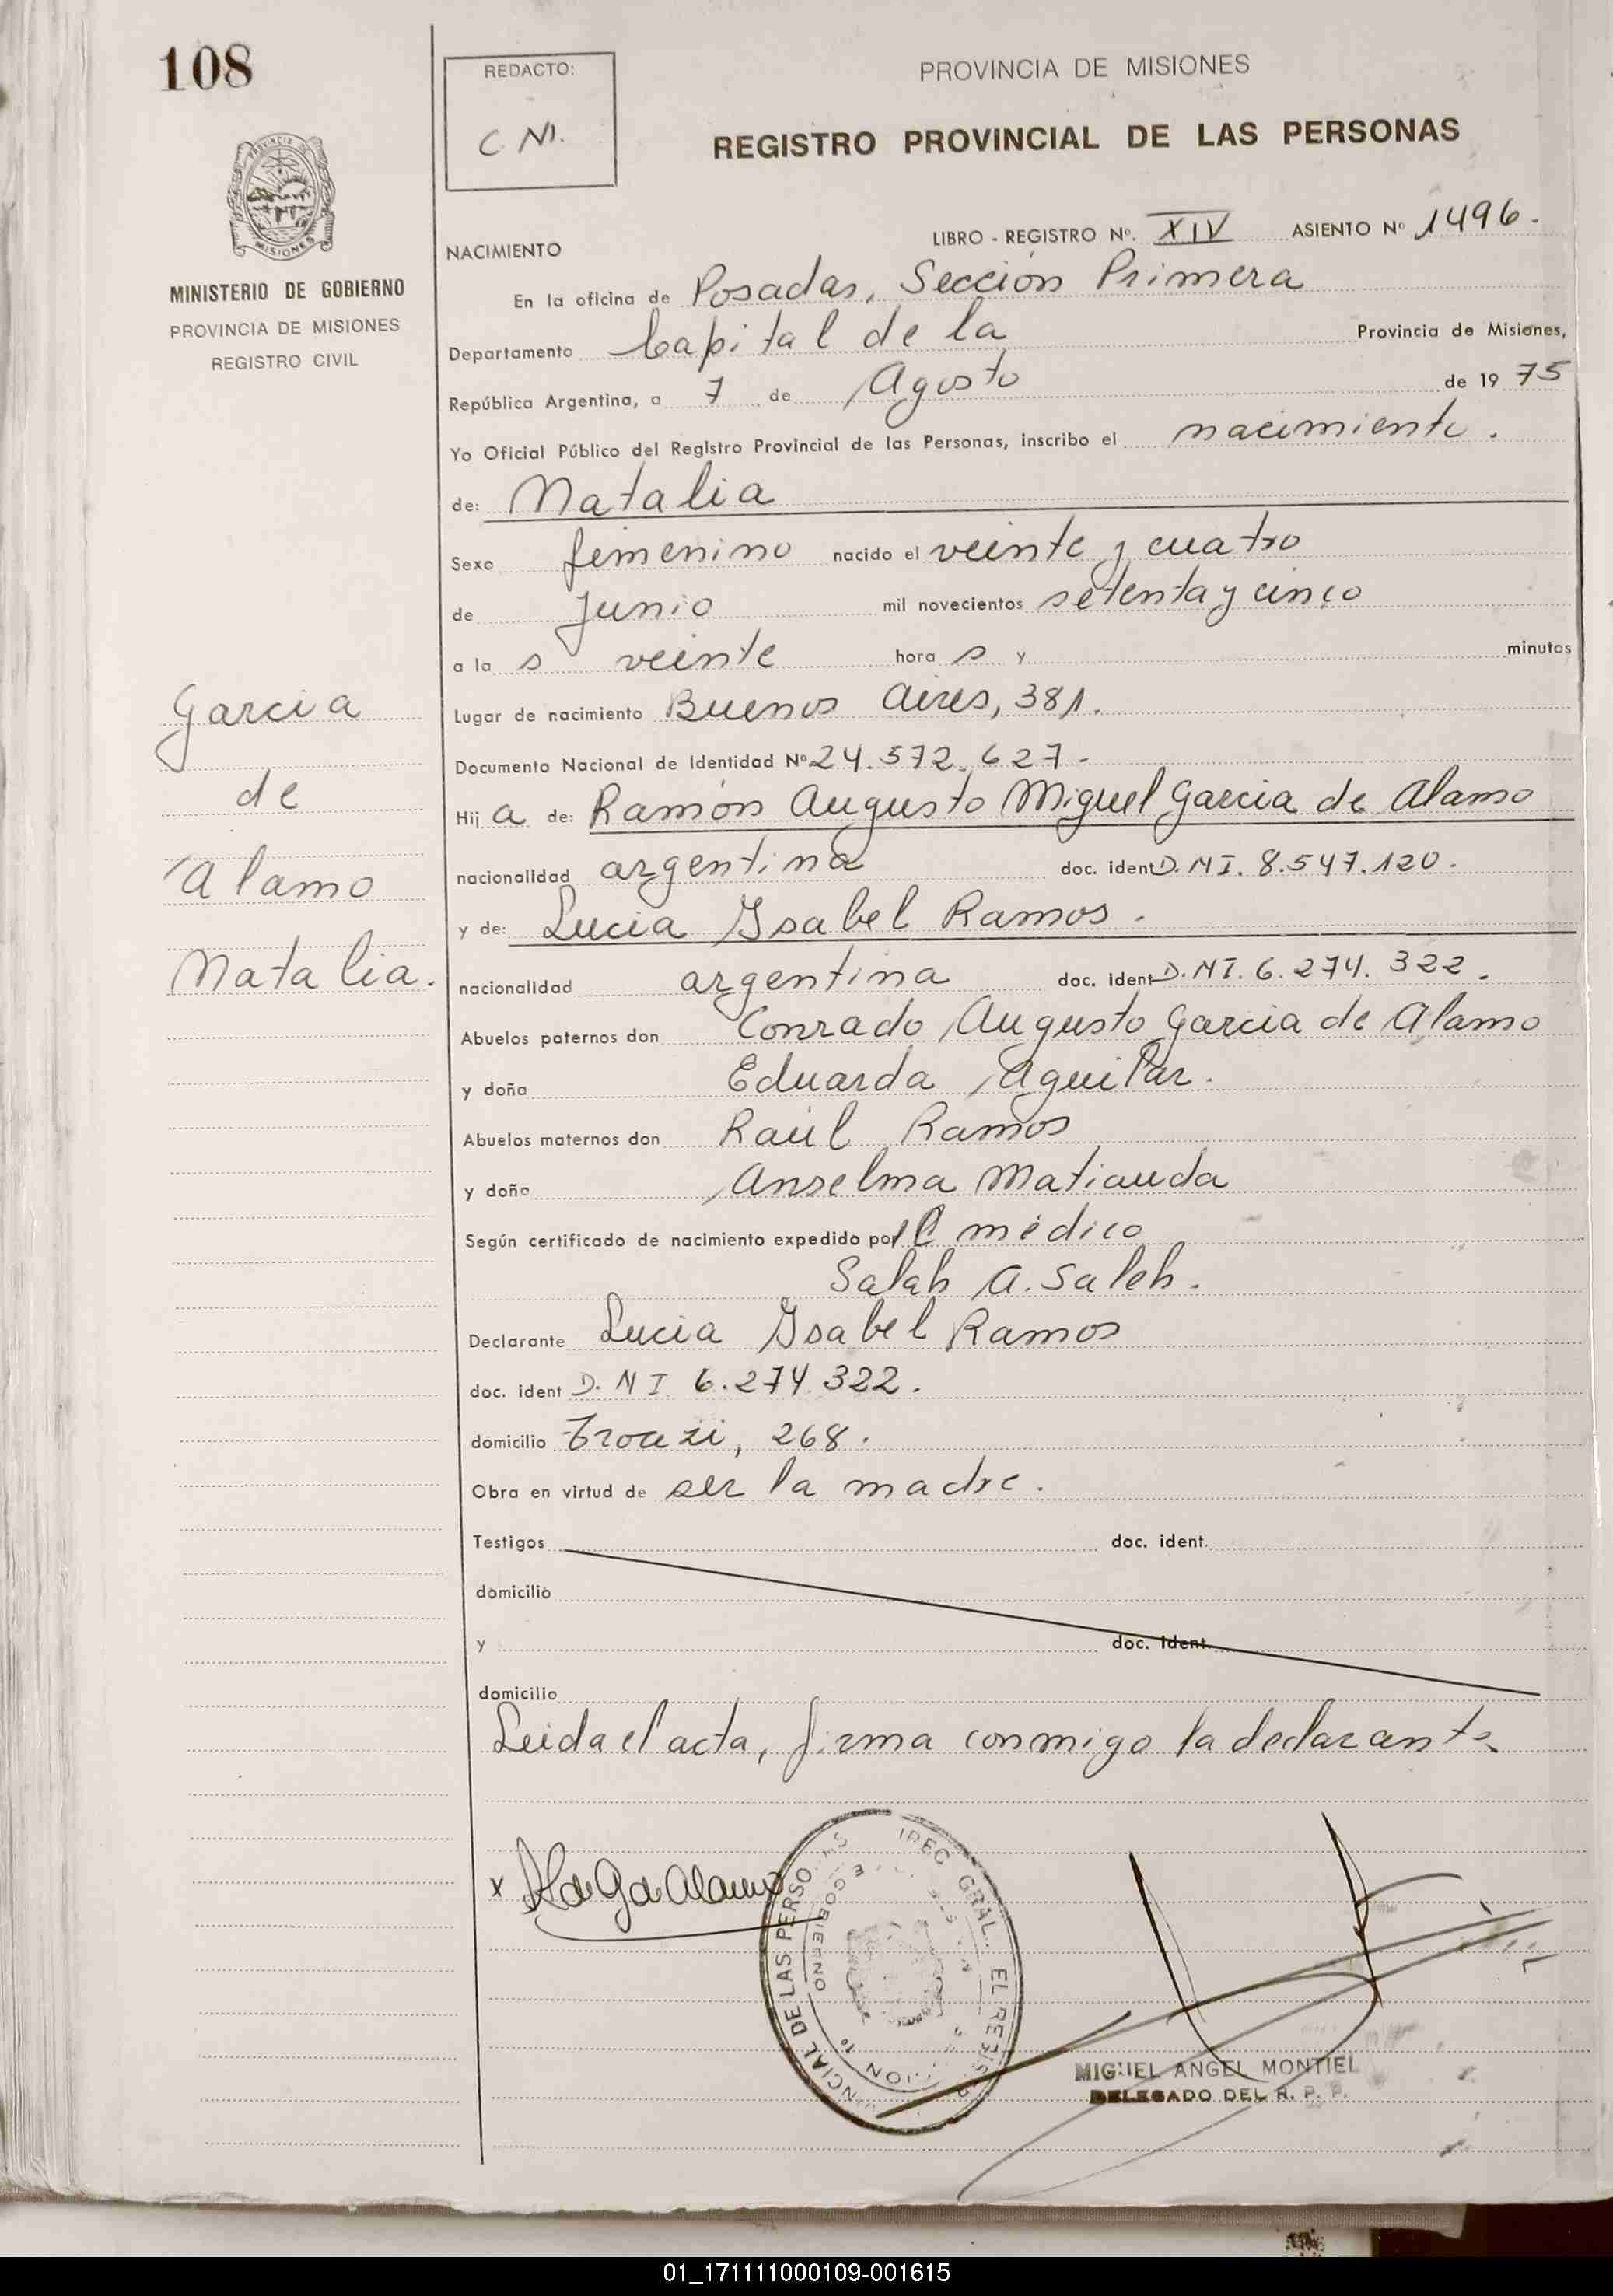 108
REDACTO:
C. M.
PROVINCIA DE MISIONES
REGISTRO PROVINCIAL DE LAS PERSONAS
MISIONES
MINISTERIO DE GOBIERNO
PROVINCIA DE MISIONES
REGISTRO CIVIL
LIBRO - REGISTRO Nº. XIV ASIENTO Nº 1496.
NACIMIENTO
En la oficina de Posadas, Sección Primera
Departamento Capital de la Provincia de Misiones,
República Argentina, a 7 de Agosto de 1975
Yo Oficial Público del Registro Provincial de las Personas, inscribo el nacimiento.
de: Natalia
Sexo femenino nacido el veinte y cuatro
de Junio mil novecientos setenta y cinco
a las veinte horas y minutos
Lugar de nacimiento Buenos Aires, 381.
Documento Nacional de Identidad Nº 24.572.627.-
Hija de: Ramón Augusto Miguel Garcia de Alamo
nacionalidad argentina doc. ident D.N I. 8.547.120.
y de: Lucia Ysabel Ramos.
nacionalidad argentina doc. ident D.N I. 6.274.322.
Garcia
de
Alamo
Natalia.
Abuelos paternos don Conrado Augusto Garcia de Alamo
y doña Eduarda Aguilar.
Abuelos maternos don Raúl Ramos
y doña Anselma Matiauda
Según certificado de nacimiento expedido por el médico
Salah A. Saleh.
Declarante Lucia Ysabel Ramos
doc. ident D. N I 6.274.322.
domicilio 268.
Obra en virtud de ser la madre.
Testigos doc. ident.
domicilio
y doc. ident.
domicilio
Leida el acta, firma conmigo la declarante
x de G de Alamo
MIGUEL ANGEL MONTIEL
DELEGADO DEL R. P. P.
01_171111000109-001615